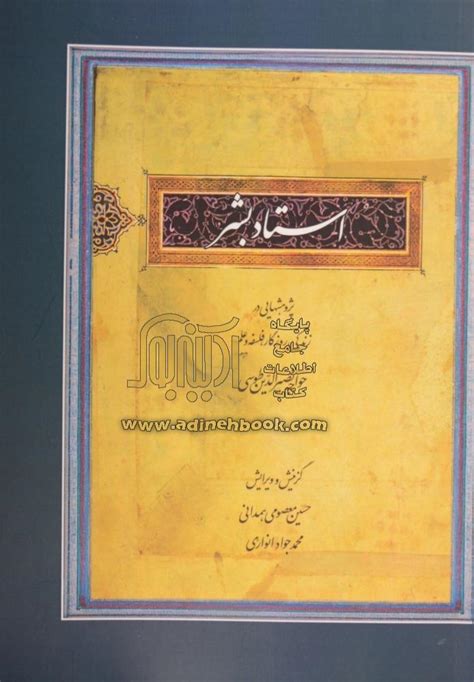 استاد بشر
پژوهشهایی در
روزگار فلسفه و علم
خواجه نصیرالدین طوسی
آدینه بوک
پایگاه
جامع
اطلاعات
کتاب
www.adinehbook.com
گزینش و ویرایش
حسین معصومی همدانی
محمد جواد انواری